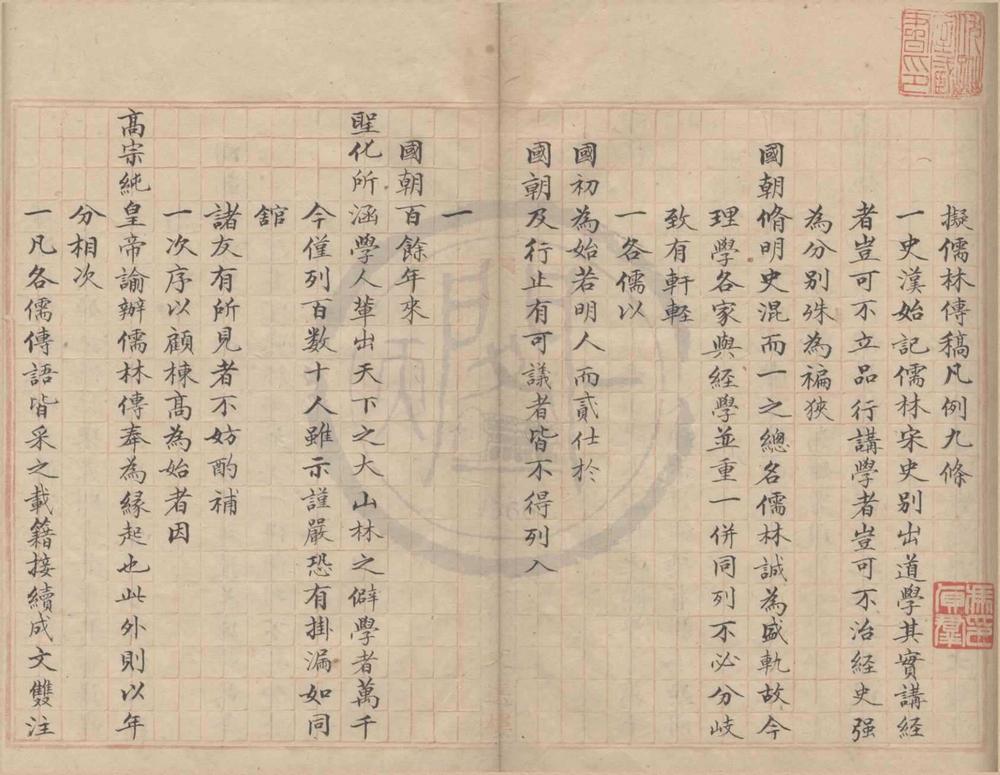 擬儒林傳稿凡例九條
一史漢始記儒林宋史别出道學其實講經
者豈可不立品行講學者豈可不治經史强
為分别殊為褊狹
國朝脩明史混而一之總名儒林誠為盛軌故今
理學各家與經學並重一併同列不必分歧
致有軒輊
一各儒以
國初為始若明人而貳仕於
國朝及行止有可議者皆不得列入
一
國朝百餘年來
聖化所涵學人輩出天下之大山林之僻學者萬千
今僅列百數十人雖示謹嚴恐有掛漏如同
舘
諸友有所見者不妨酌補
一次序以顧棟高為始者因
高宗純皇帝諭辦儒林傳奉為緣起也此外則以年
分相次
一凡各儒傳語皆采之載籍接續成文雙注